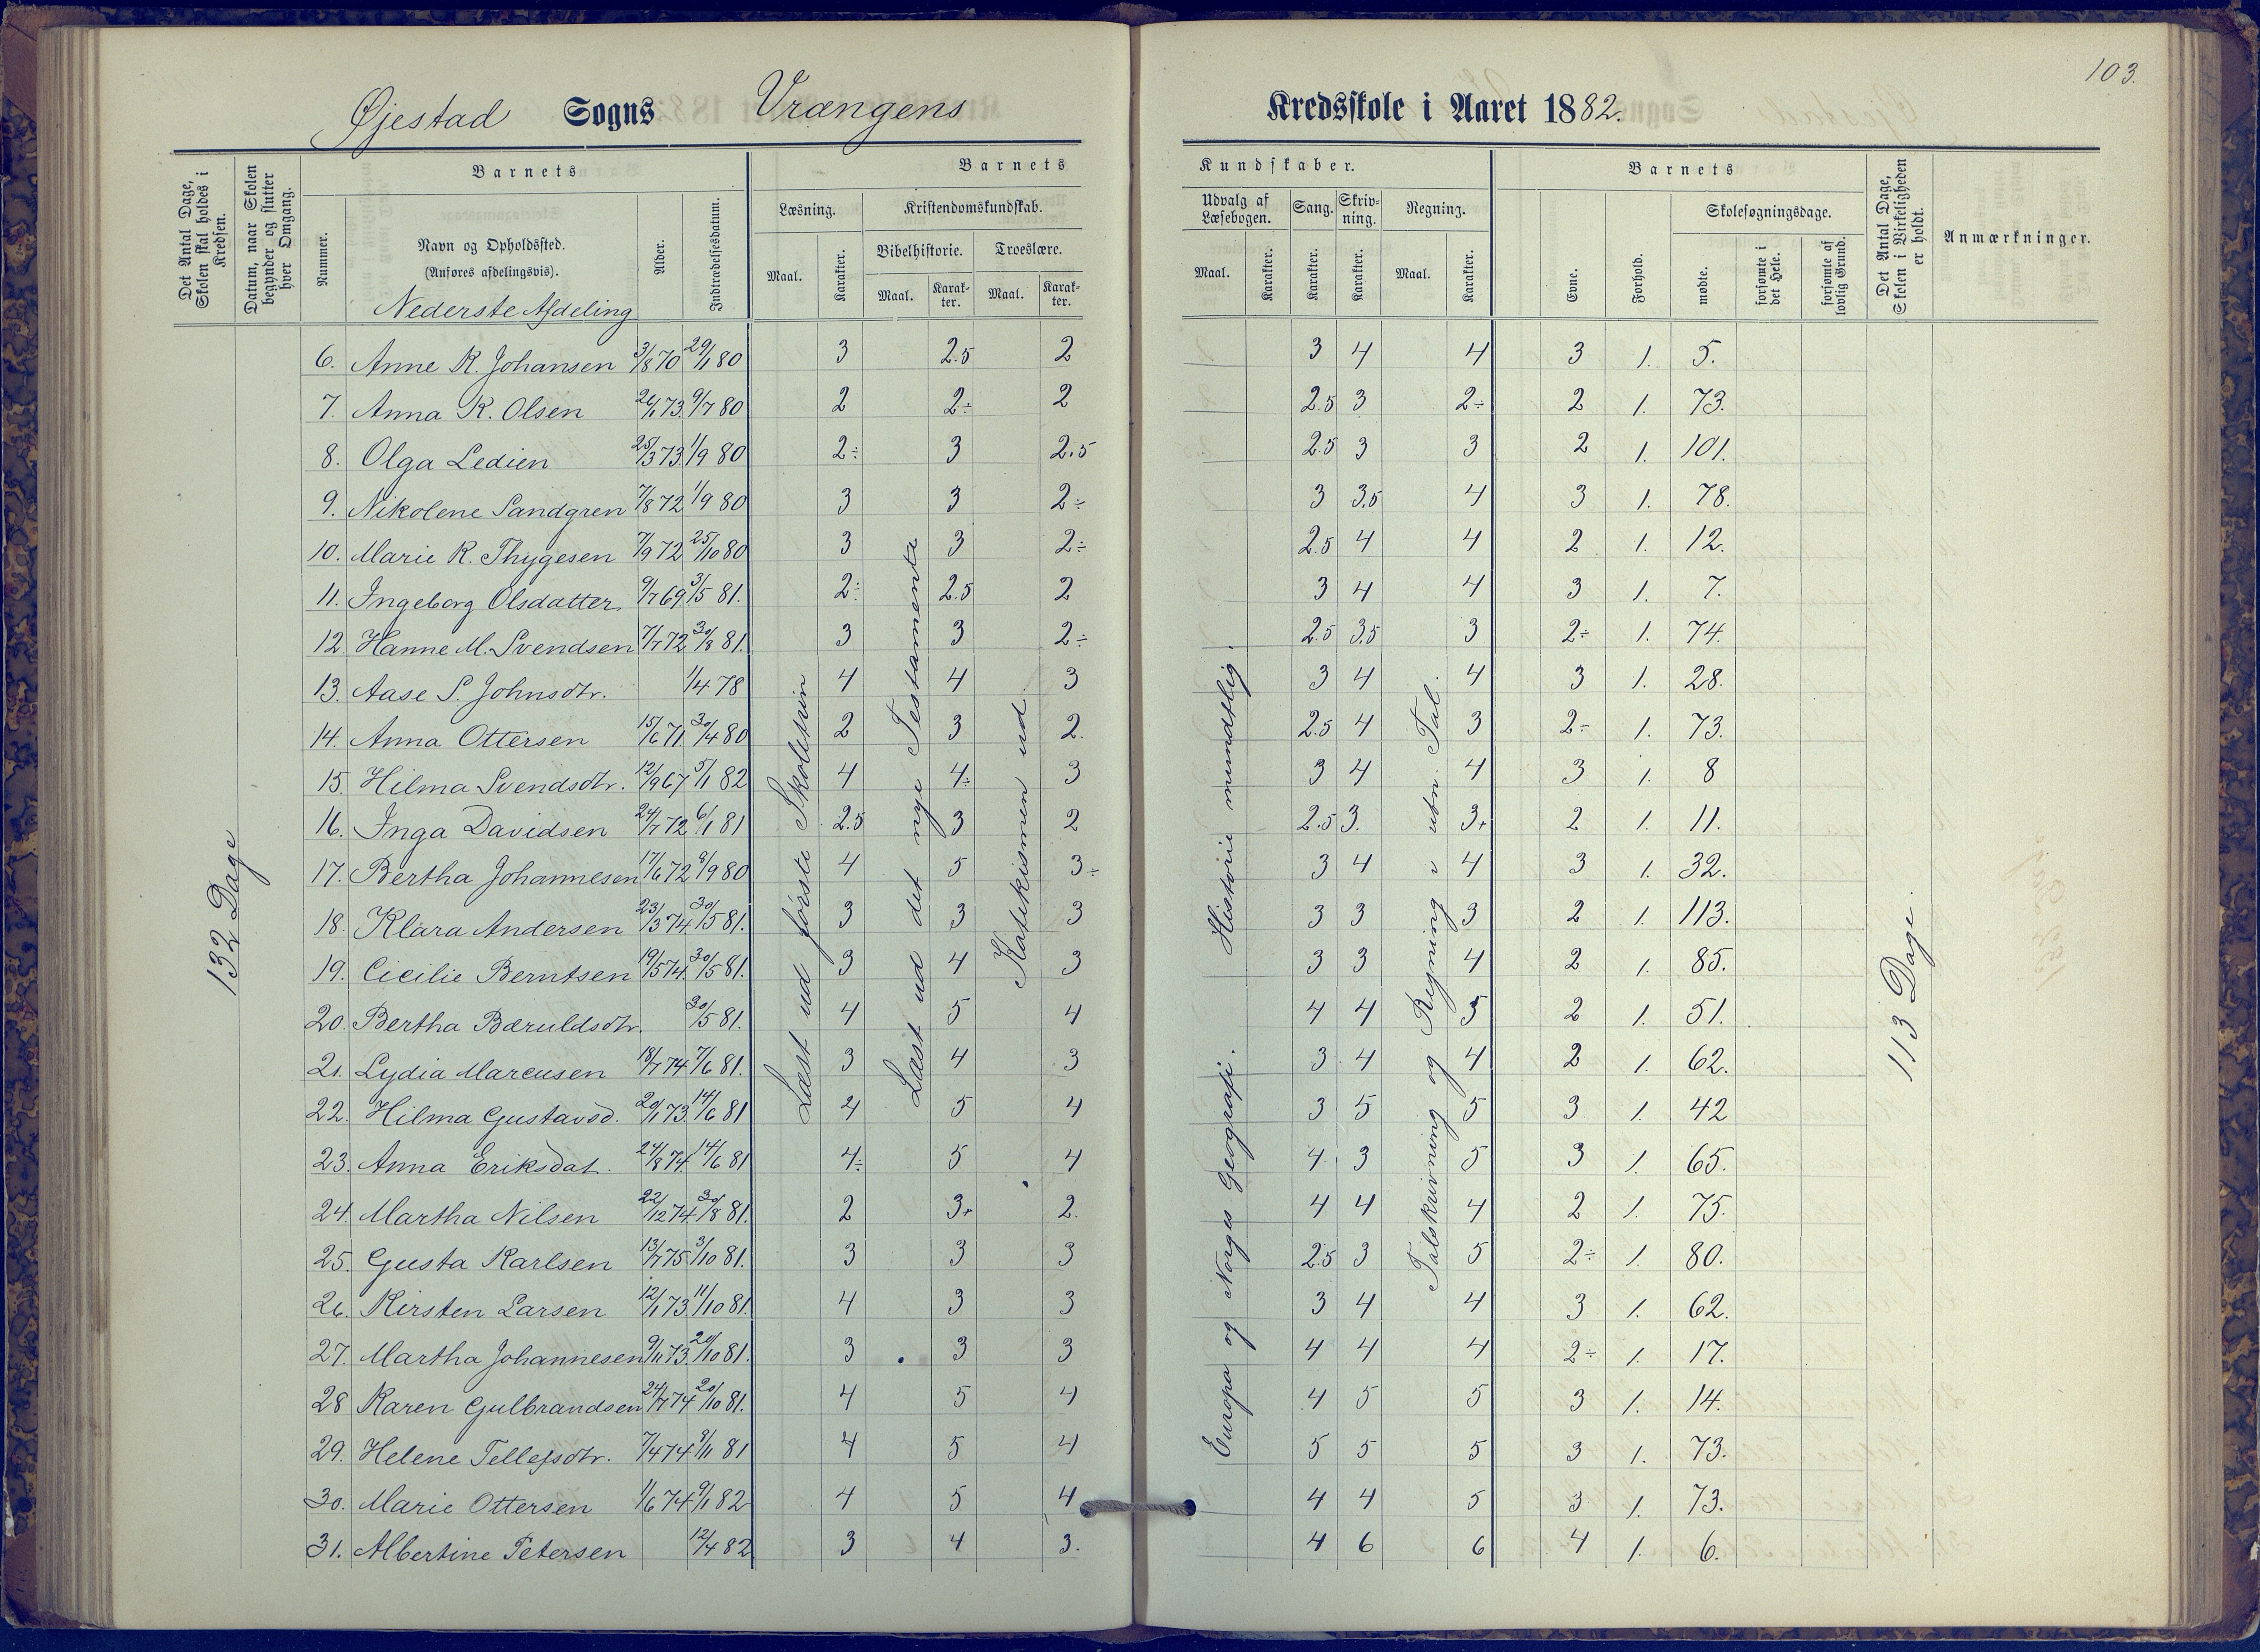 103.
Øjestad Sogns Vrangens Kredsskole i Aaret 1882.
Det Antal Dage, Skolen skal holdes i Kredsen.
Datum, naar Skolen begynder og slutter hver Omgang.
Barnets
Nummer.
Navn og Opholdssted.
(Anføres afdelingsvis).
Nederste Afdeling
Alder.
Indtrædelsesdatum.
Barnets Kundskaber.
Læsning.
Maal.
Karakter.
Kristendomskundskab.
Bibelhistorie.
Maal.
Karakter.
Troeslære.
Maal.
Karakter.
Udvalg af Læsebogen.
Maal.
Karakter.
Sang.
Karakter.
Skrivning.
Karakter.
Regning.
Maal.
Karakter.
Barnets
Evne.
Forhold.
Skolesøgningsdage.
mødte.
forsømte i det Hele.
forsømte af lovlig Grund.
Det Antal Dage, Skolen i Virkeligheden er holdt.
Anmærkninger.
132 Dage
Læst ud første Skoletrin
Læst ud det nye Testamente
Katekismen ud
Europa og Norges Geografi. Historie mundtlig.
Talskrivning og Regning i ubn. Tal.
113 Dage.
6. Anne R. Johansen 3/8 70 29/1 80 3 2.5 2 3 4 4 3 1. 5.
7. Anna K. Olsen 26/1 73. 9/7 80 2 2÷ 2 2.5 3 2÷ 2 1. 73.
8. Olga Ledien 25/3 73 1/9 80 2÷ 3 2.5 2.5 3 3 2 1. 101.
9. Nikolene Sandgren 7/8 72 1/9 80 3 3 2÷ 3 3,5 4 3 1. 78.
10. Marie K. Thygesen 7/9 72 25/10 80 3 3 2÷ 2.5 4 4 2 1. 12.
11. Ingeborg Olsdatter 9/7 69 3/5 81. 2÷ 2.5 2 3 4 4 3 1. 7.
12. Hanne M. Svendsen 7/7 72 30/8 81. 3 3 2÷ 2.5 3,5 3 2÷ 1. 74.
13. Aase S. Johnsdtr. 1/4 78 4 4 3 3 4 4 3 1. 28.
14. Anna Ottersen 15/6 71. 30/4 80 2 3 2. 2.5 4 3 2÷ 1. 73.
15. Hilma Svendsdtr. 12/9 67 5/1 82 4 4÷ 3 3 4 4 3 1. 8
16. Inga Davidsen 24/7 72 6/1 81 2.5 3 2 2.5 3. 3+ 2 1. 11.
17. Bertha Johannesen 17/6 72 8/9 80 4 5 3÷ 3 4 4 3 1. 32.
18. Klara Andersen 23/3 74. 30/5 81. 3 3 3 3 3 3 2 1. 113.
19. Cicilie Berntsen 19/5 74. 30/5 81. 3 4 3 3 3 4 2 1. 85.
20. Bertha Bæruldsdtr. 30/5 81. 4 5 4 4 4 5 2 1. 51.
21. Lydia Marcusen 18/7 74 7/6 81. 3 4 3 3 4 4 2 1. 62.
22. Hilma Gustavsd. 20/1 73. 14/6 81 4 5 4 3 5 5 3 1. 42
23. Anna Eriksdat. 24/8 74. 14/6 81 4÷ 5 4 4 3 5 3 1. 65.
24. Martha Nilsen 22/12 74. 30/8 81. 2 3+ 2. 4 4 4 2 1. 75.
25. Gusta Karlsen 13/7 75 3/10 81. 3 3 3 2.5 3 5 2÷ 1. 80.
26. Kirsten Larsen 12/1 73 11/10 81. 4 3 3 3 4 4 3 1. 62.
27. Martha Johannesen 9/11 73. 20/10 81. 3 3 3 4 4 4 2÷ 1. 17.
28 Karen Gulbrandsen 24/7 74 20/10 81. 4 5 4 4 5 5 3 1. 14.
29. Helene Tellefsdtr. 7/4 74 9/11 81 4 5 4 5 5 5 3 1. 73.
30. Marie Ottersen 1/6 74 9/1 82 4 5 4 4 4 5 3 1. 73.
31. Albertine Petersen 12/4 82 3 4 3. 4 6 6 4 1. 6.